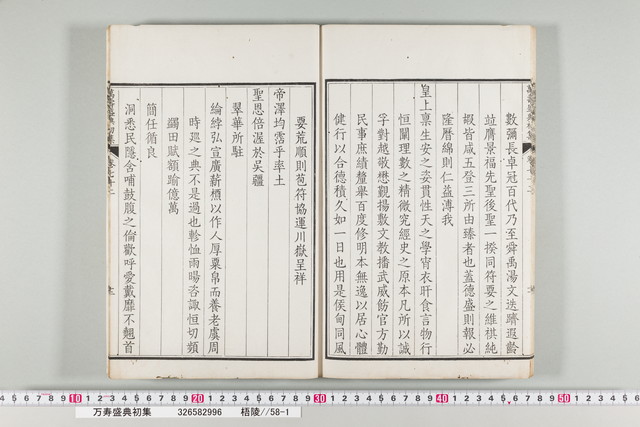 數彌長卓冠百代乃至舜禹湯文迭躋遐齡
竝膺景福先聖後聖一揆同符要之維祺純
嘏皆咸五登三所由臻者也蓋德盛則報必
隆曆綿則仁益溥我
皇上稟生安之姿貫性天之學宵衣旰食言物行
恒闡理數之精微究經史之原本凡所以誠
孚對越敬懋觀揚敷文教播武威飭官方勤
民事庶績釐舉百度修明本無逸以居心體
健行以合德積久如一日也用是侯甸同風
要荒順則苞符協運川嶽呈祥
帝澤均霑乎率土
聖恩倍渥於吳疆
翠華所駐
綸綍弘宣廣薪槱以作人厚粟帛而養老虞周
時巡之典不是過也軫恤雨暘咨諏恒切頻
蠲田賦額踰億萬
簡任循良
洞悉民隱含哺鼓腹之倫歡呼愛戴靡不翹首
10 20 30 40 50
万寿盛典初集 326582996 梧陵//58-1